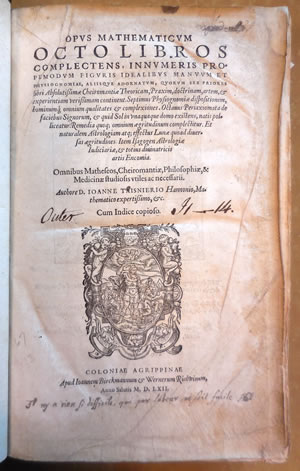 OPVS MATHEMATICVM
OCTO LIBROS
COMPLECTENS, INNVMERIS PRO-
PEMODVM FIGVRIS IDEALIBVS MANVVM ET
PHYSIOGNOMIAE, ALIISQVE ADORNATVM, QVORVM SEX PRIORES
libri Absolutissimæ Cheiromantiæ Theoricam, Praxim, doctrinam, artem, &
experientiam verissimam continent. Septimus Physiognomiæ dispositionem,
hominumq́; omnium qualitates & complexiones. Octauus Periaxiomata de
faciebus Signorum, & quid Sol in vnaquaque domo existens, natis
polliceatur. Remedia quoq; omnium ægritudinum complectitur. Et
naturalem Astrologiam atq; effectus Lunæ quoad diuer-
sas ægritudines. Item Isagogen Astrologiæ
Iudiciariæ, & totius diuinatricis
artis Encomia.
Omnibus Matheseos, Cheiromantiæ, Philosophiæ, &
Medicinæ studiosis vtiles ac necessarii.
Authore D. IOANNE TAISNIERIO Hannonio, Ma-
thematico expertissimo, &c.
Cum Indice copioso.
COLONIAE AGRIPPINAE
Apud Ioannem Birckmannum & Wernerum Richwinum,
Anno Salutis M. D. LXII.